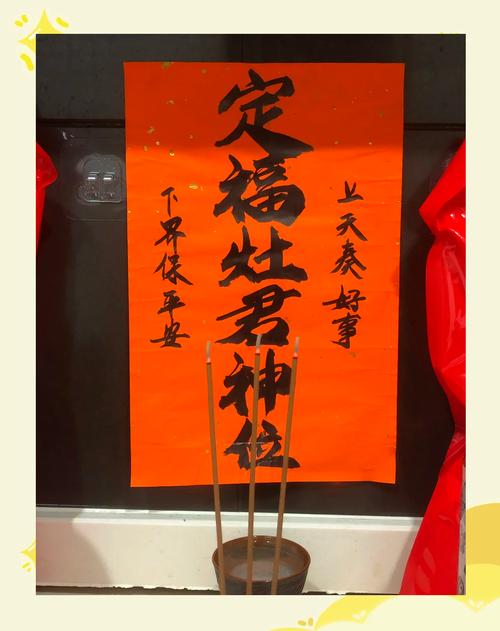 上天奏好事
定福灶君神位
下界保平安